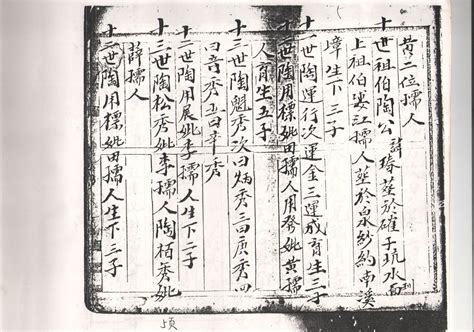 黄二位孺人
十世祖伯陶公諱瑋葬於確子坑水面
上祖伯婆江孺人葬於泉紗約南溪
瑋生下三子
十一世陶運行次運金三運成育生三子
十二世陶用標妣田孺人用發妣黄孺
人育生五子
十三世陶魁秀次曰炳秀三曰廣秀四
曰音秀五曰章秀
十二世陶用展妣李孺人生下二子
十三世陶松秀妣李孺人陶栢秀妣
薛孺人
十二世陶用標妣田孺人生下三子
5页